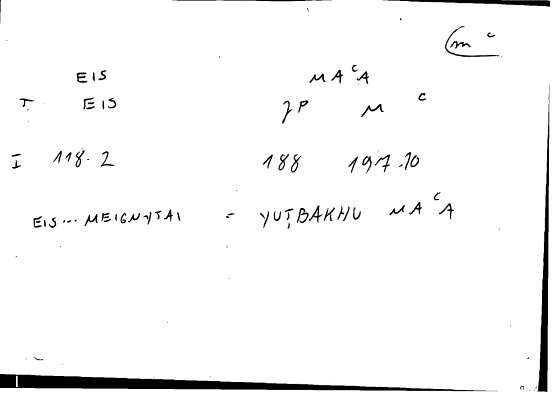 m c
EIS MA^cA
T EIS JP M c
I 118.2 188 197.10
EIS... MEIGNYTAI = YUṬBAKHU MA^cA